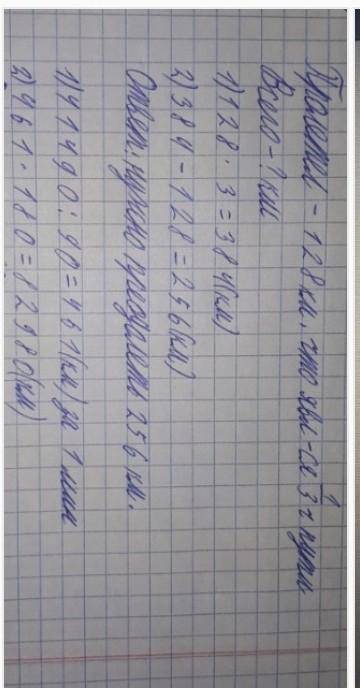 Пролетел - 128 км, что явл-ся 1/3 ч пути
Всего - ? км
1) 128 · 3 = 384(км)
2) 384 - 128 = 256(км)
Ответ: нужно преодолеть 256 км.
1) 41490 : 90 = 461(км) за 1 мин
2) 461 · 180 = 82980(км)